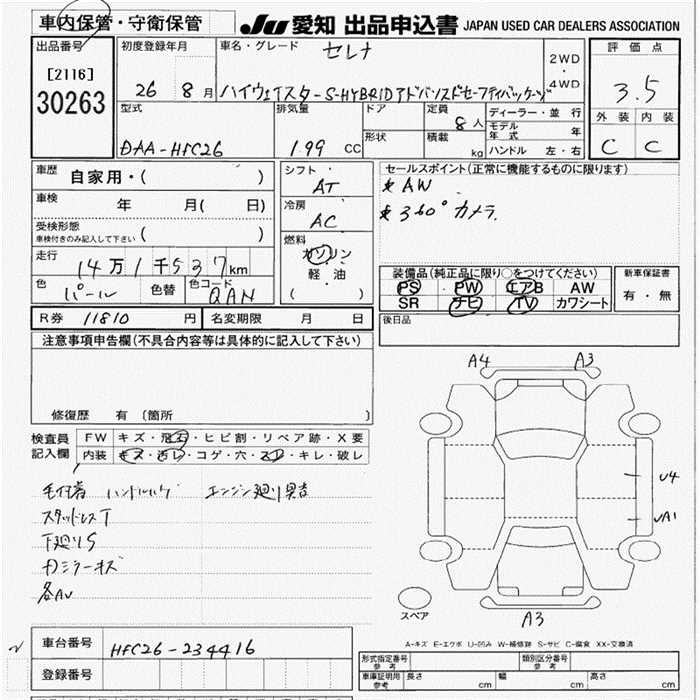 車内保管・守衛保管
JU 愛知 出品申込書 JAPAN USED CAR DEALERS ASSOCIATION
出品番号
[2116]
30263
初度登録年月
26 8月
車名・グレード セレナ
ハイウェイスター S-HYBRID アドバンスドセーフティパッケージ
2WD
・
4WD
評価点
3.5
外装 内装
C C
型式
DAA-HFC26
排気量
1.99 CC
ドア
形状
定員
8人
積載
kg
ディーラー・並行
モデル年式 年
ハンドル 左・右
車歴 自家用・( )
車検 年 月( 日)
受検形態
車検付きのみ記入して下さい ( )
走行 14万1千537km
色 パール 色替 色コード QAN
シフト
AT
冷房
AC
燃料
ガソリン
軽油
( )
セールスポイント(正常に機能するものに限ります)
★AW
★360°カメラ
装備品(純正品に限り○をつけてください)
PS PW エアB AW
SR ナビ TV カワシート
新車保証書
有・無
後日品
R券 11810 円 名変期限 月 日
注意事項申告欄(不具合内容等は具体的に記入して下さい)
修復歴 有 〔箇所 〕
検査員記入欄
FW キズ・飛石・ヒビ割・リペア跡・X要
内装 キズ・汚レ・コゲ・穴・スレ・キレ・破レ
ハンドルハゲ エンジン廻り異音
スタッドレスT
下廻りS
Fガラスキズ
各AU
A4 A3
U4
A1
スペア
A3
A-キズ E-エクボ U-凹み W-補修跡 S-サビ C-腐食 XX-交換済
車台番号 HFC26-234416
登録番号
形式指定番号
参考
類別区分番号
参考
車庫証明用
参考
長さ cm 幅 cm 高さ cm